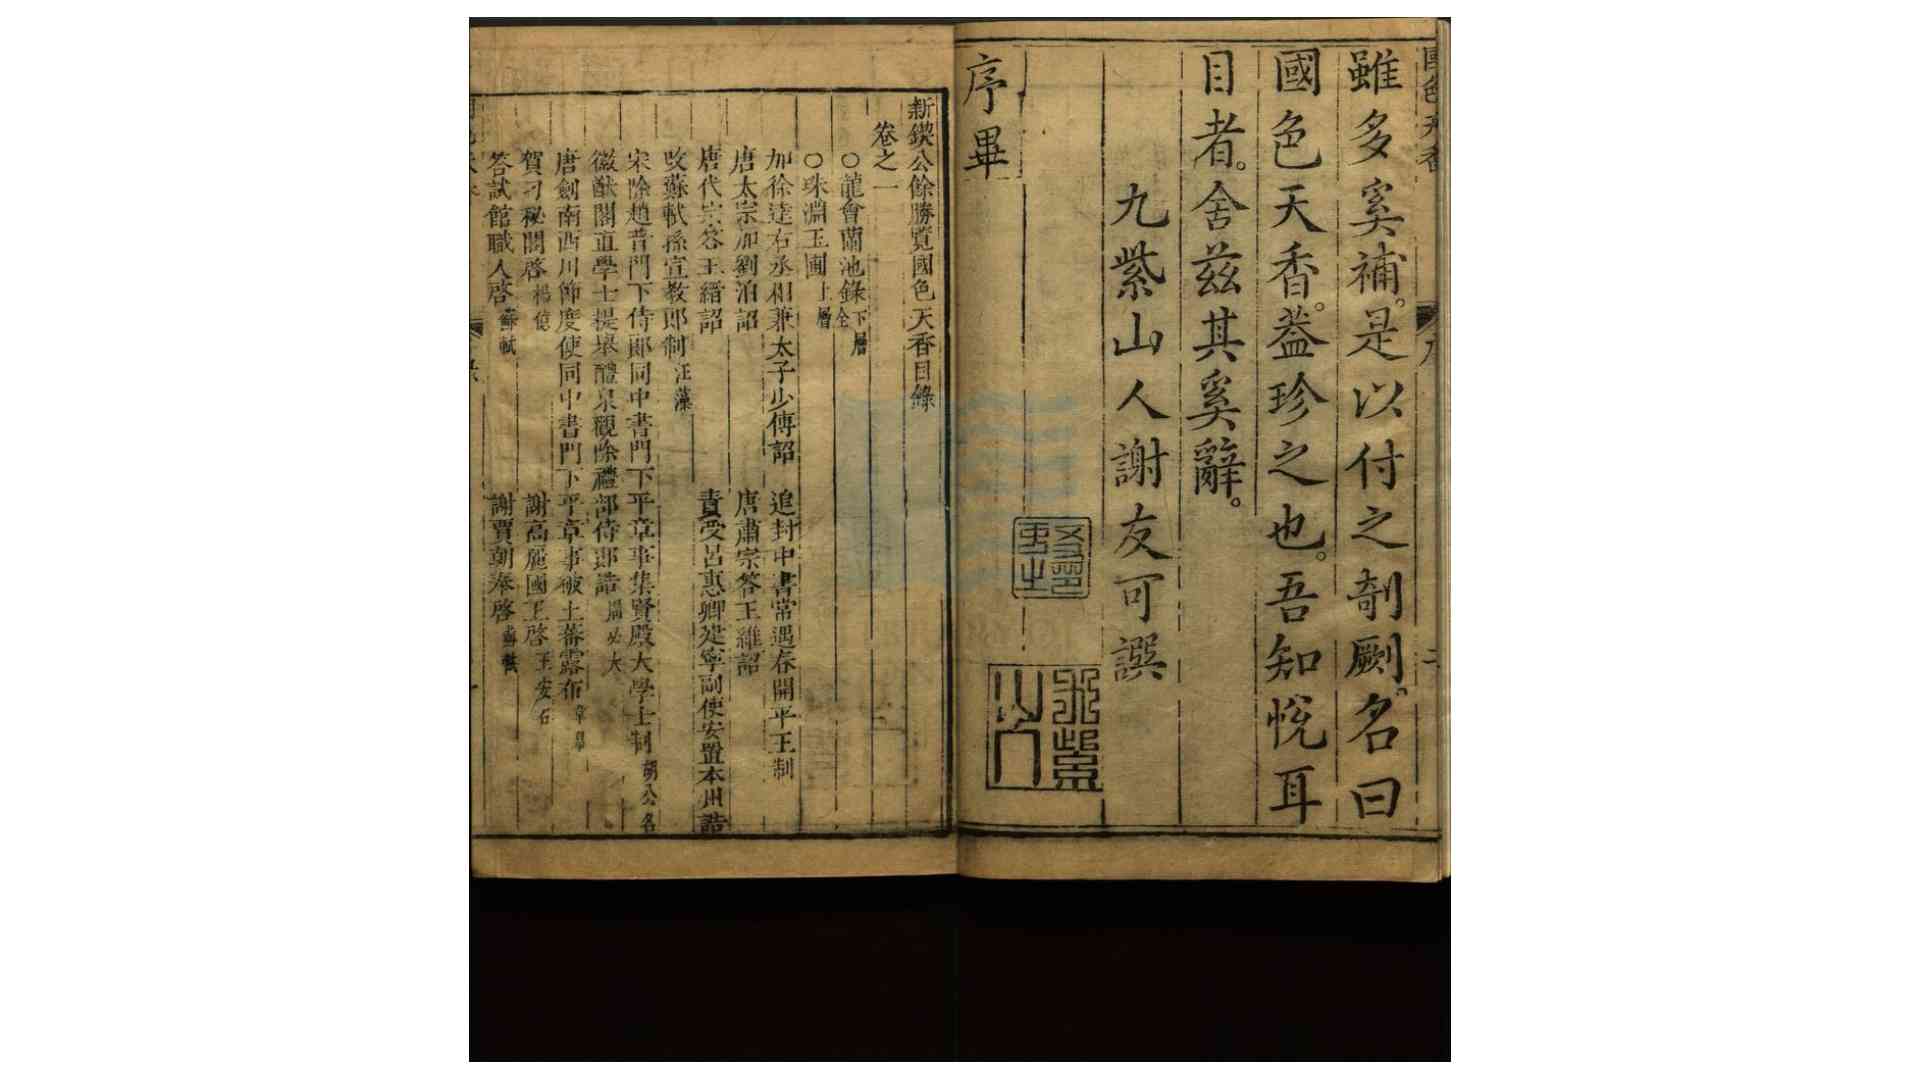 雖多奚補。是以付之剞劂。名曰
國色天香。葢珍之也。吾知悅耳
目者。舍茲其奚辭。
九紫山人謝友可譔
九紫山人
序畢
新鍥公餘勝覽國色天香目錄
卷之一
○龍會蘭池錄 下層全
○珠淵玉圃 上層
加徐達右丞相兼太子少傅詔 追封中書常遇春開平王制
唐太宗加劉洎詔 唐肅宗答王維詔
唐代宗答王縉詔 責受呂惠卿建寧副使安置本州誥
攺蘇軾孫宣教郎制 汪藻
宋除趙普門下侍郎同中書門下平章事集賢殿大學士制 胡公名
徽猷閣直學士提舉醴泉觀除禮部侍郎誥 周必大
唐劍南西川節度使同中書門下平章事破土蕃露布 韋臯
賀刁秘閣啓 楊億 謝高麗國王啓 王安石
答試館職人啓 蘇軾 謝賈朝奉啓 蘇軾